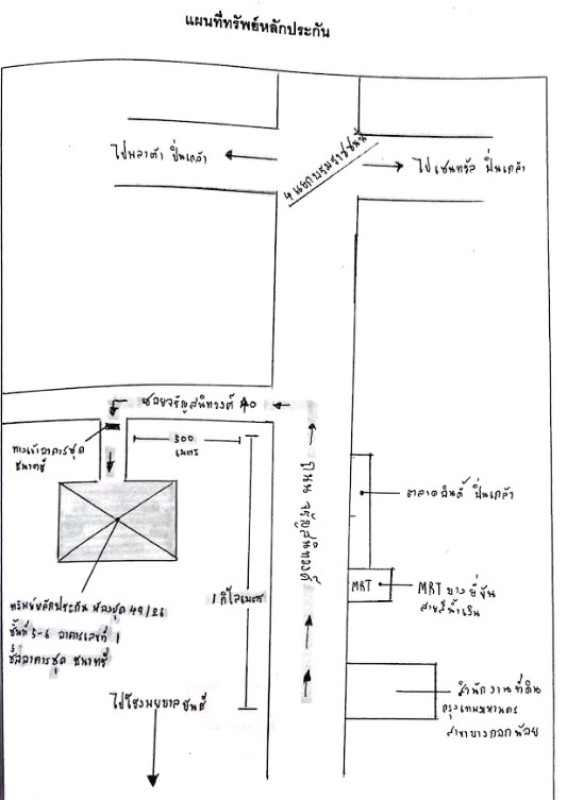 แผนที่ทรัพย์หลักประกัน
ไปพาต้า ปิ่นเกล้า
4 แยกบรมราชชนนี
ไปเซนทรัล ปิ่นเกล้า
ซอยจรัญสนิทวงศ์ 40
ทางเข้าอาคารชุด
ธนาทรี
300
เมตร
ถนน จรัญสนิทวงศ์
ตลาดอินดี้ ปิ่นเกล้า
1 กิโลเมตร
MRT
MRT บางยี่ขัน
สายสีน้ำเงิน
ทรัพย์หลักประกัน ห้องชุด 49/26
ชั้นที่ 5-6 อาคารเลขที่ 1
ชื่ออาคารชุด ธนาทรี
สำนักงานที่ดิน
กรุงเทพมหานคร
สาขาบางกอกน้อย
ไปโรงพยาบาลยันฮี